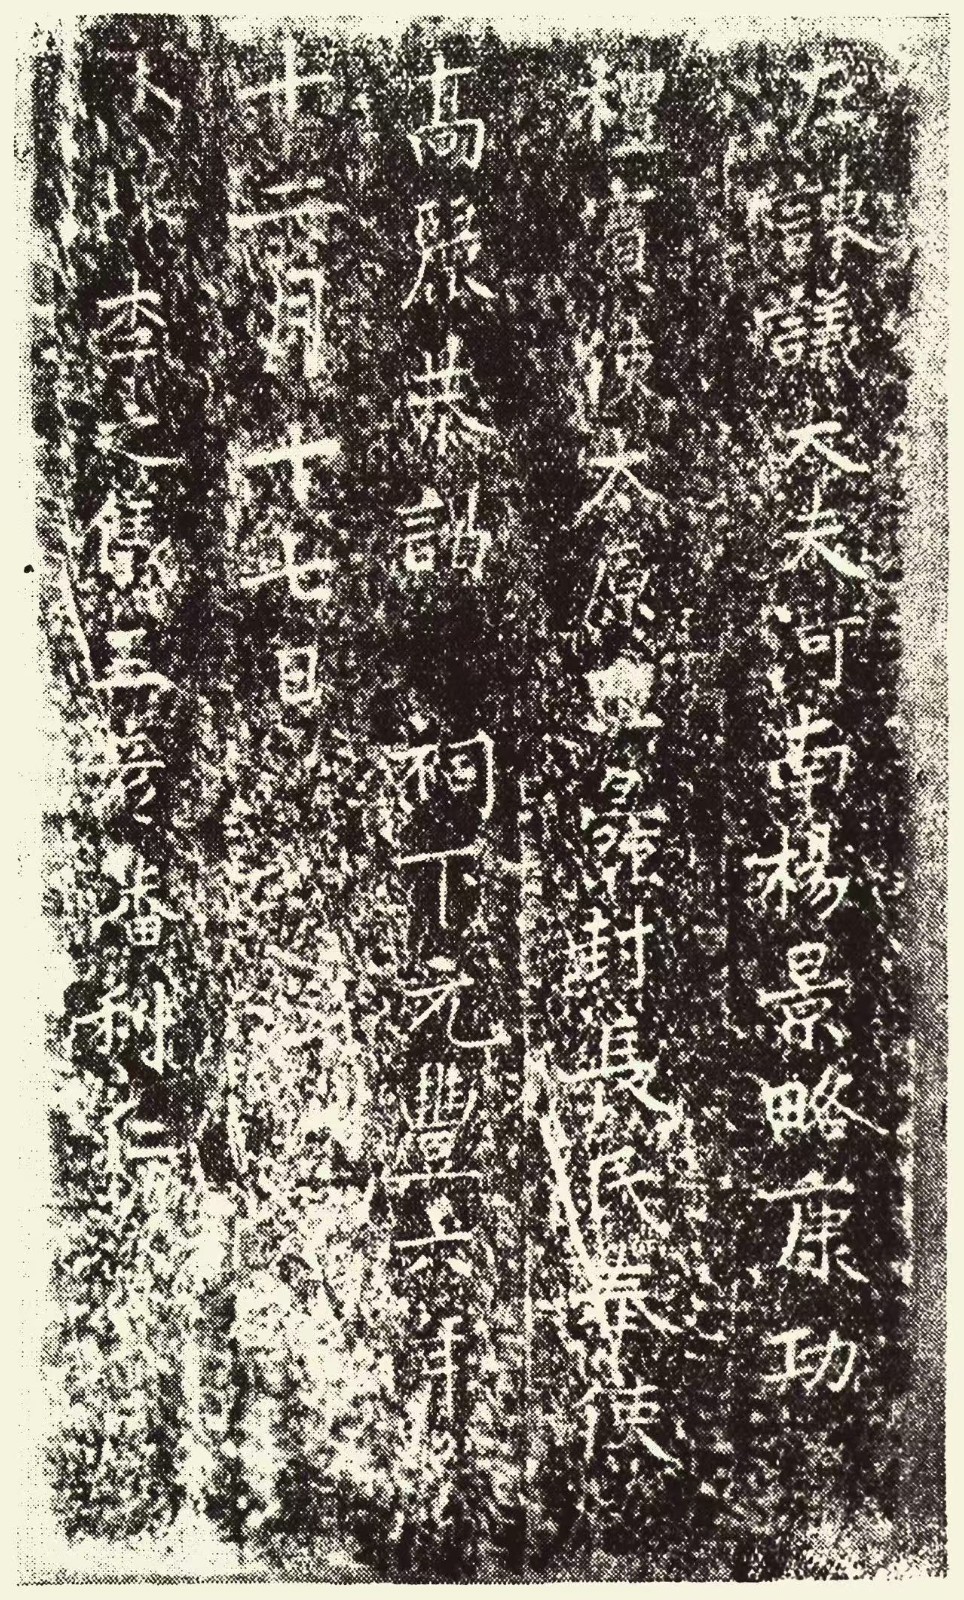 左諫議大夫河南楊景略康功
禮賓使太原王舜封長民奉使
高麗恭謁 祠下元豐六年
十二月十七日
李之儀王彥潘利仁